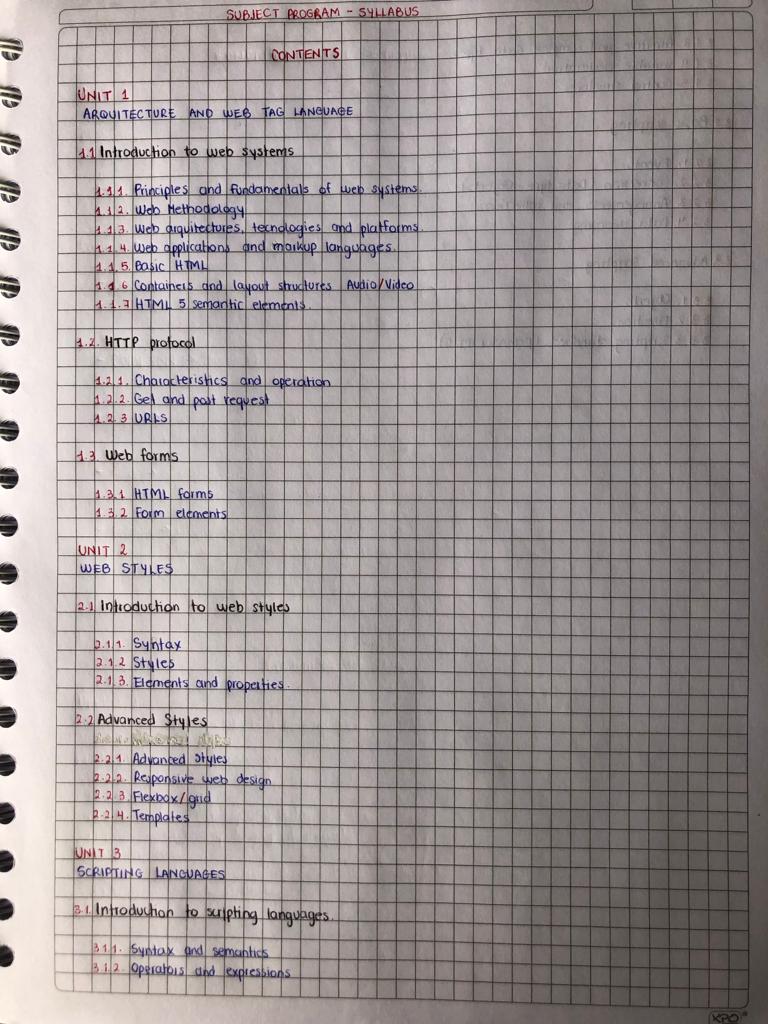 SUBJECT PROGRAM - SYLLABUS
CONTENTS
UNIT 1
ARQUITECTURE AND WEB TAG LANGUAGE
1.1 Introduction to web systems
1.1.1. Principles and fundamentals of web systems.
1.1.2. Web Methodology
1.1.3. Web arquitectures, tecnologies and platforms.
1.1.4. Web applications and markup languages.
1.1.5. Basic HTML
1.1.6 Containers and layout structures Audio/Video
1.1.7 HTML 5 semantic elements.
1.2. HTTP protocol
1.2.1. Characteristics and operation
1.2.2. Get and post request
1.2.3 URLS
1.3. Web forms
1.3.1 HTML forms
1.3.2 Form elements
UNIT 2
WEB STYLES
2.1. Introduction to web styles
2.1.1. Syntax
2.1.2 Styles
2.1.3. Elements and properties.
2.2 Advanced Styles
2.2.1. Advanced Styles
2.2.2. Responsive web design
2.2.3. Flexbox/grid
2.2.4. Templates
UNIT 3
SCRIPTING LANGUAGES
3.1. Introduction to scripting languages.
3.1.1. Syntax and semantics
3.1.2. Operators and expressions
KPO